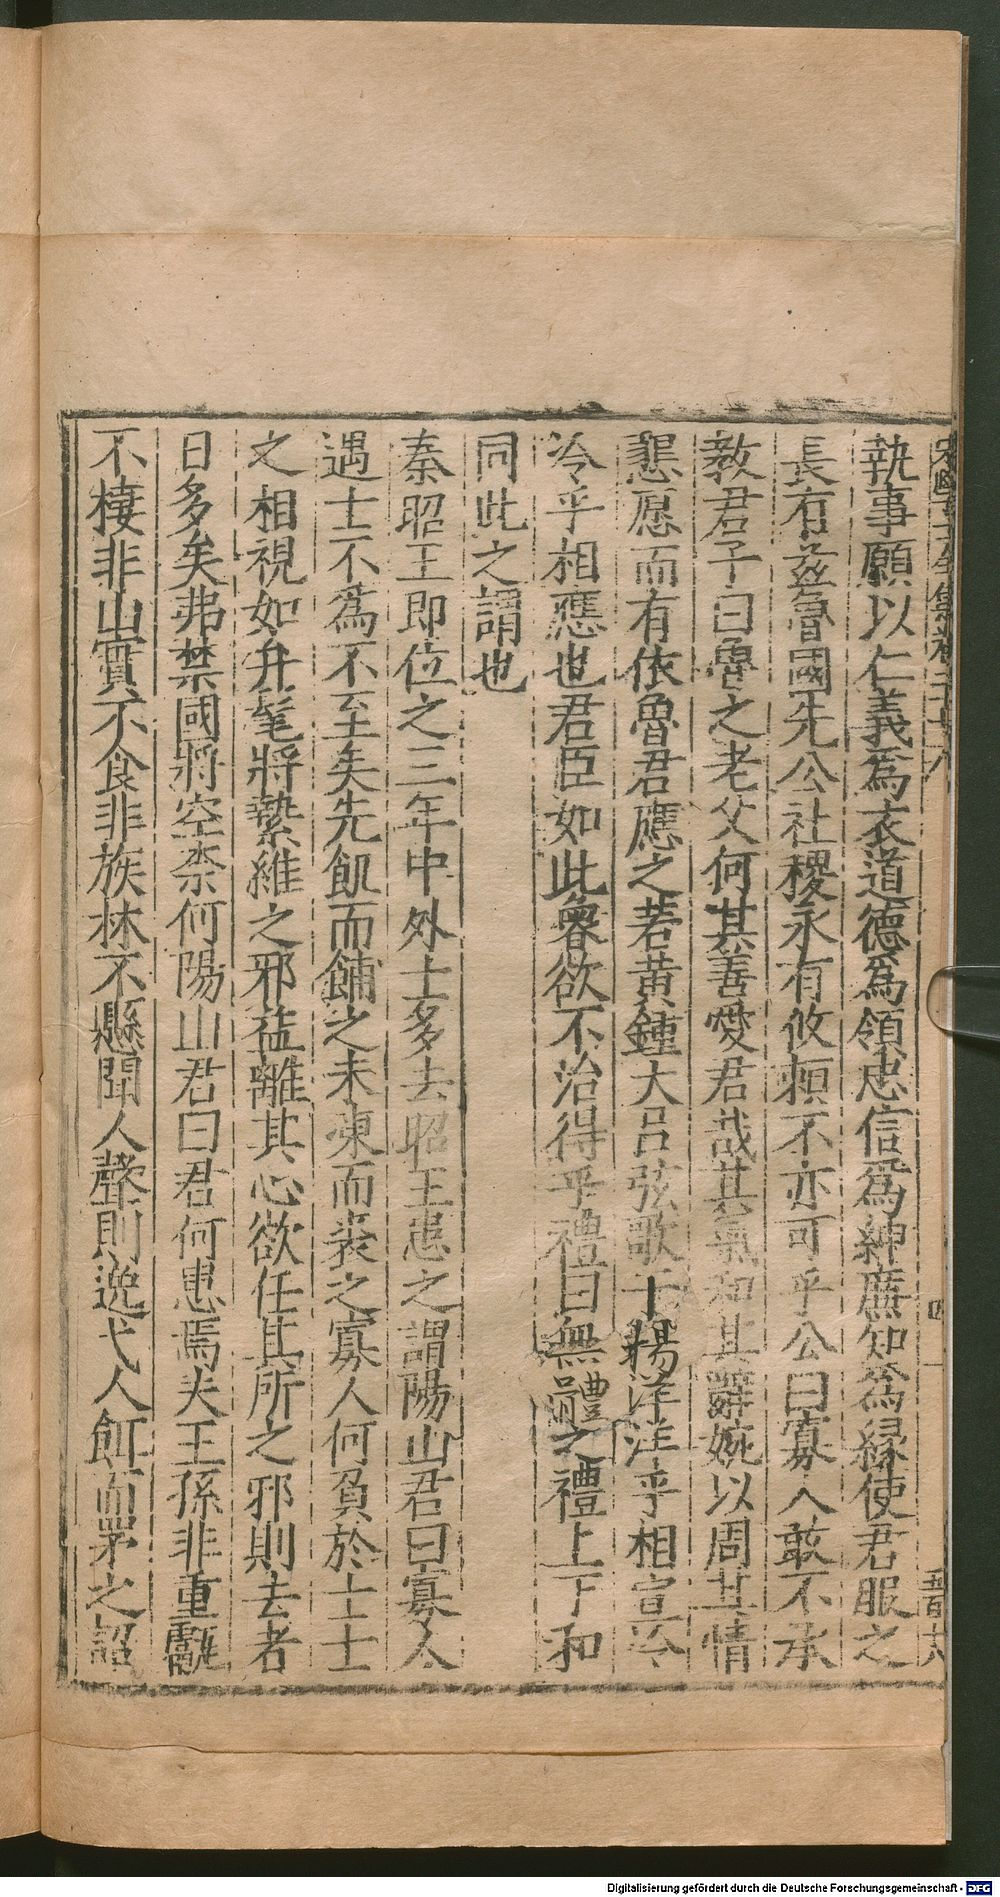 執事願以仁義爲衣道德爲領忠信爲紳廉知爲緣使君服之
長有兹魯國先公社稷永有攸頼不亦可乎公曰寡人敢不承
教君子曰魯之老父何其善愛君哉其氣和其辭婉以周其情
懇愿而有依魯君應之若黄鍾大吕弦歌干揚洋洋乎相宣泠
泠乎相應也君臣如此魯欲不治得乎禮曰無體之禮上下和
同此之謂也
秦昭王即位之三年中外士多去昭王患之謂陽山君曰寡人
遇士不爲不至矣先飢而餔之未凍而裘之寡人何負於士士
之相視如弁髦將縶維之邪益離其心欲任其所之邪則去者
日多矣弗禁國將空柰何陽山君曰君何患焉夫王孫非重巘
不棲非山實不食非族林不懸聞人聲則逸弋人餌而茅之詔
五百十八
Digitalisierung gefördert durch die Deutsche Forschungsgemeinschaft - DFG